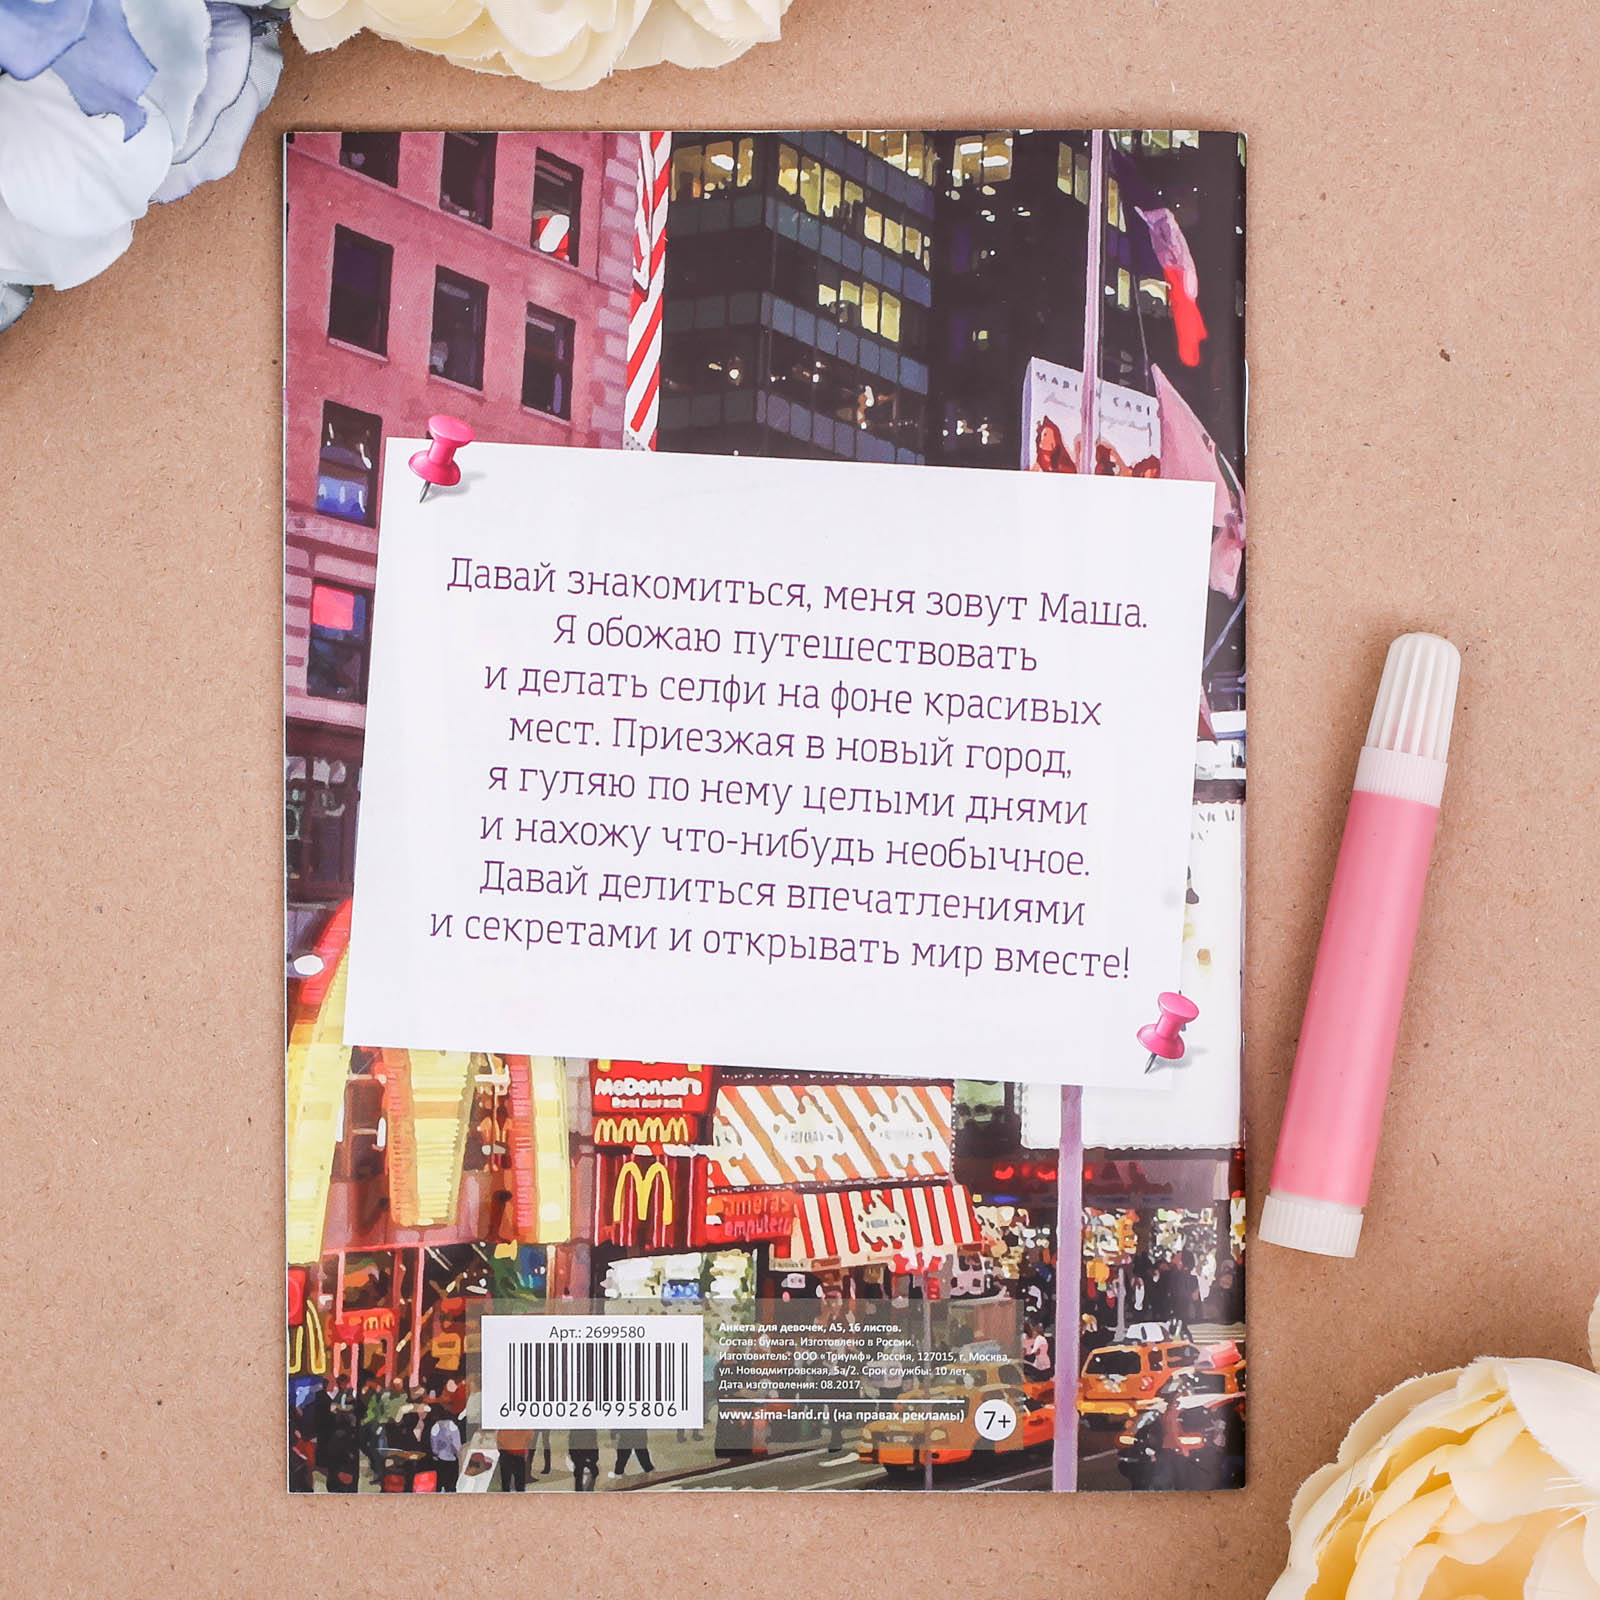 MARI
CABI
Давай знакомиться, меня зовут Маша.
Я обожаю путешествовать
и делать селфи на фоне красивых
мест. Приезжая в новый город,
я гуляю по нему целыми днями
и нахожу что-нибудь необычное.
Давай делиться впечатлениями
и секретами и открывать мир вместе!
McDonald's
Арт.: 2699580
6 900026 995806
Анкета для девочек, А5, 16 листов.
Состав: бумага. Изготовлено в России.
Изготовитель: ООО «Триумф», Россия, 127015, г. Москва,
ул. Новодмитровская, 5а/2. Срок службы: 10 лет.
Дата изготовления: 08.2017.
www.sima-land.ru (на правах рекламы)
7+